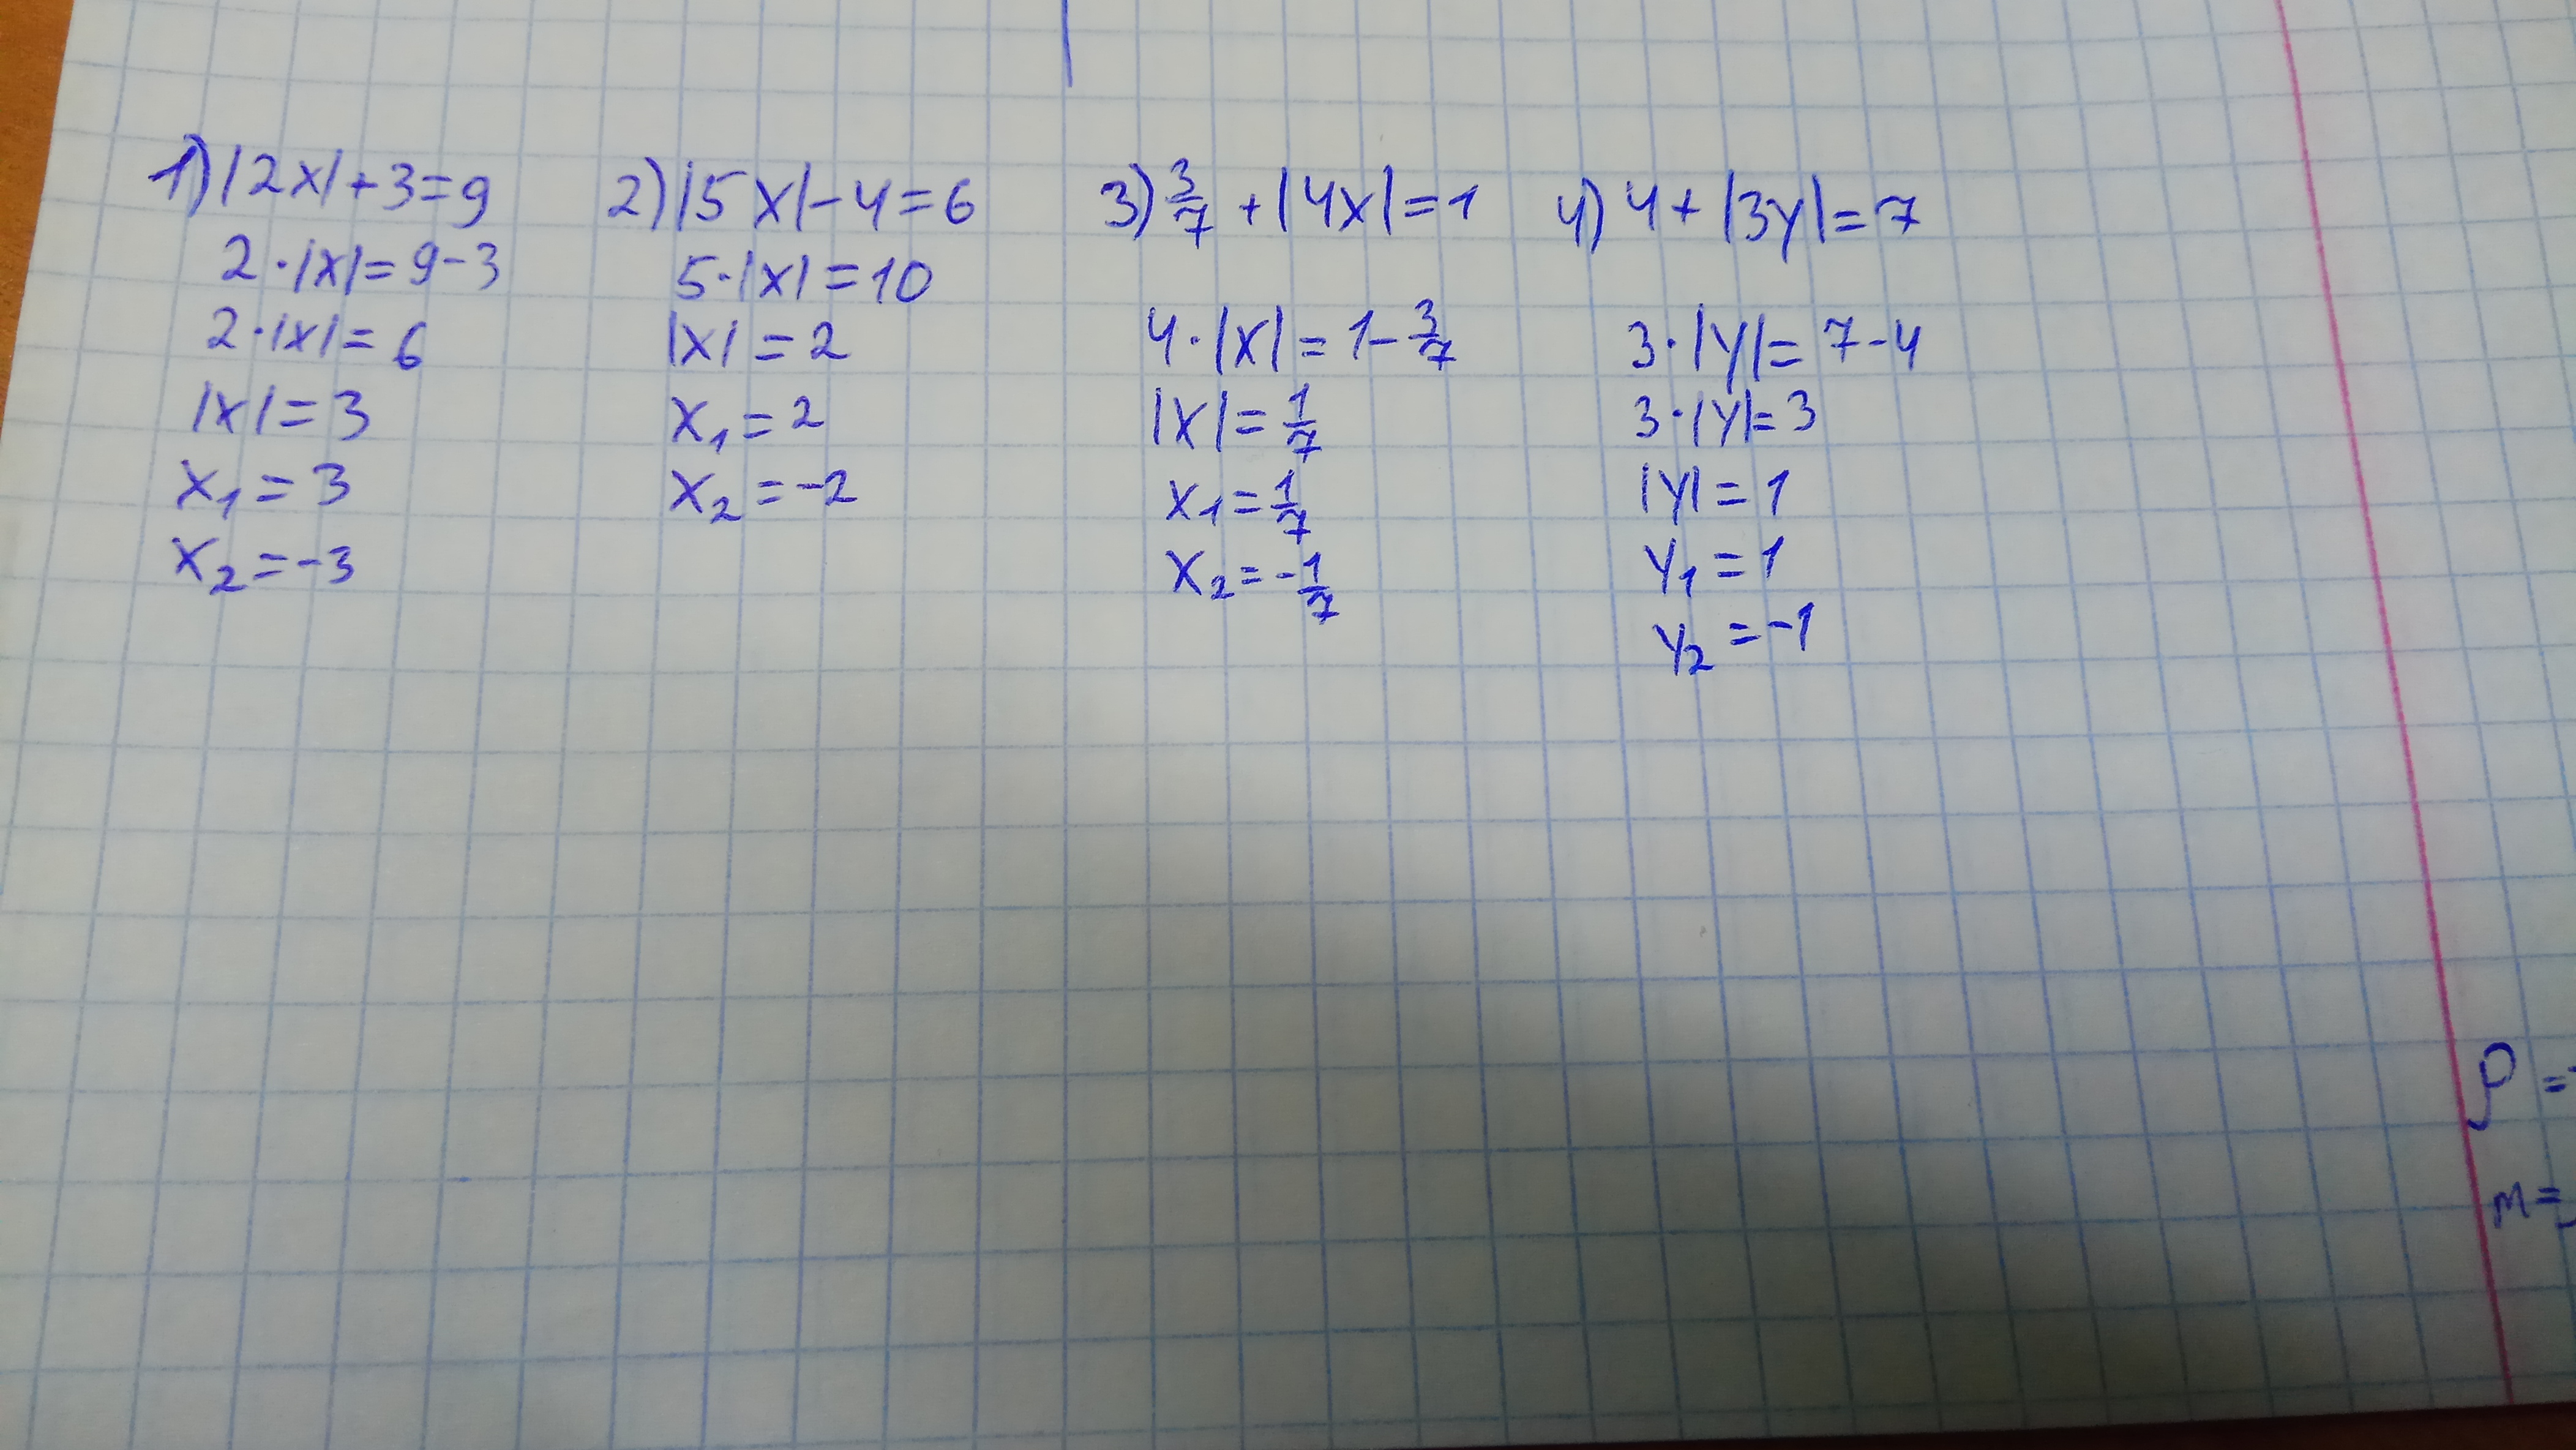 1) |2x|+3=9
2·|x|=9-3
2·|x|=6
|x|=3
x₁=3
x₂=-3
2) |5x|-4=6
5·|x|=10
|x|=2
x₁=2
x₂=-2
3) 3/7+|4x|=1
4·|x|=1-3/7
|x|=1/7
x₁=1/7
x₂=-1/7
4) 4+|3y|=7
3·|y|=7-4
3·|y|=3
|y|=1
y₁=1
y₂=-1
ρ=
m=